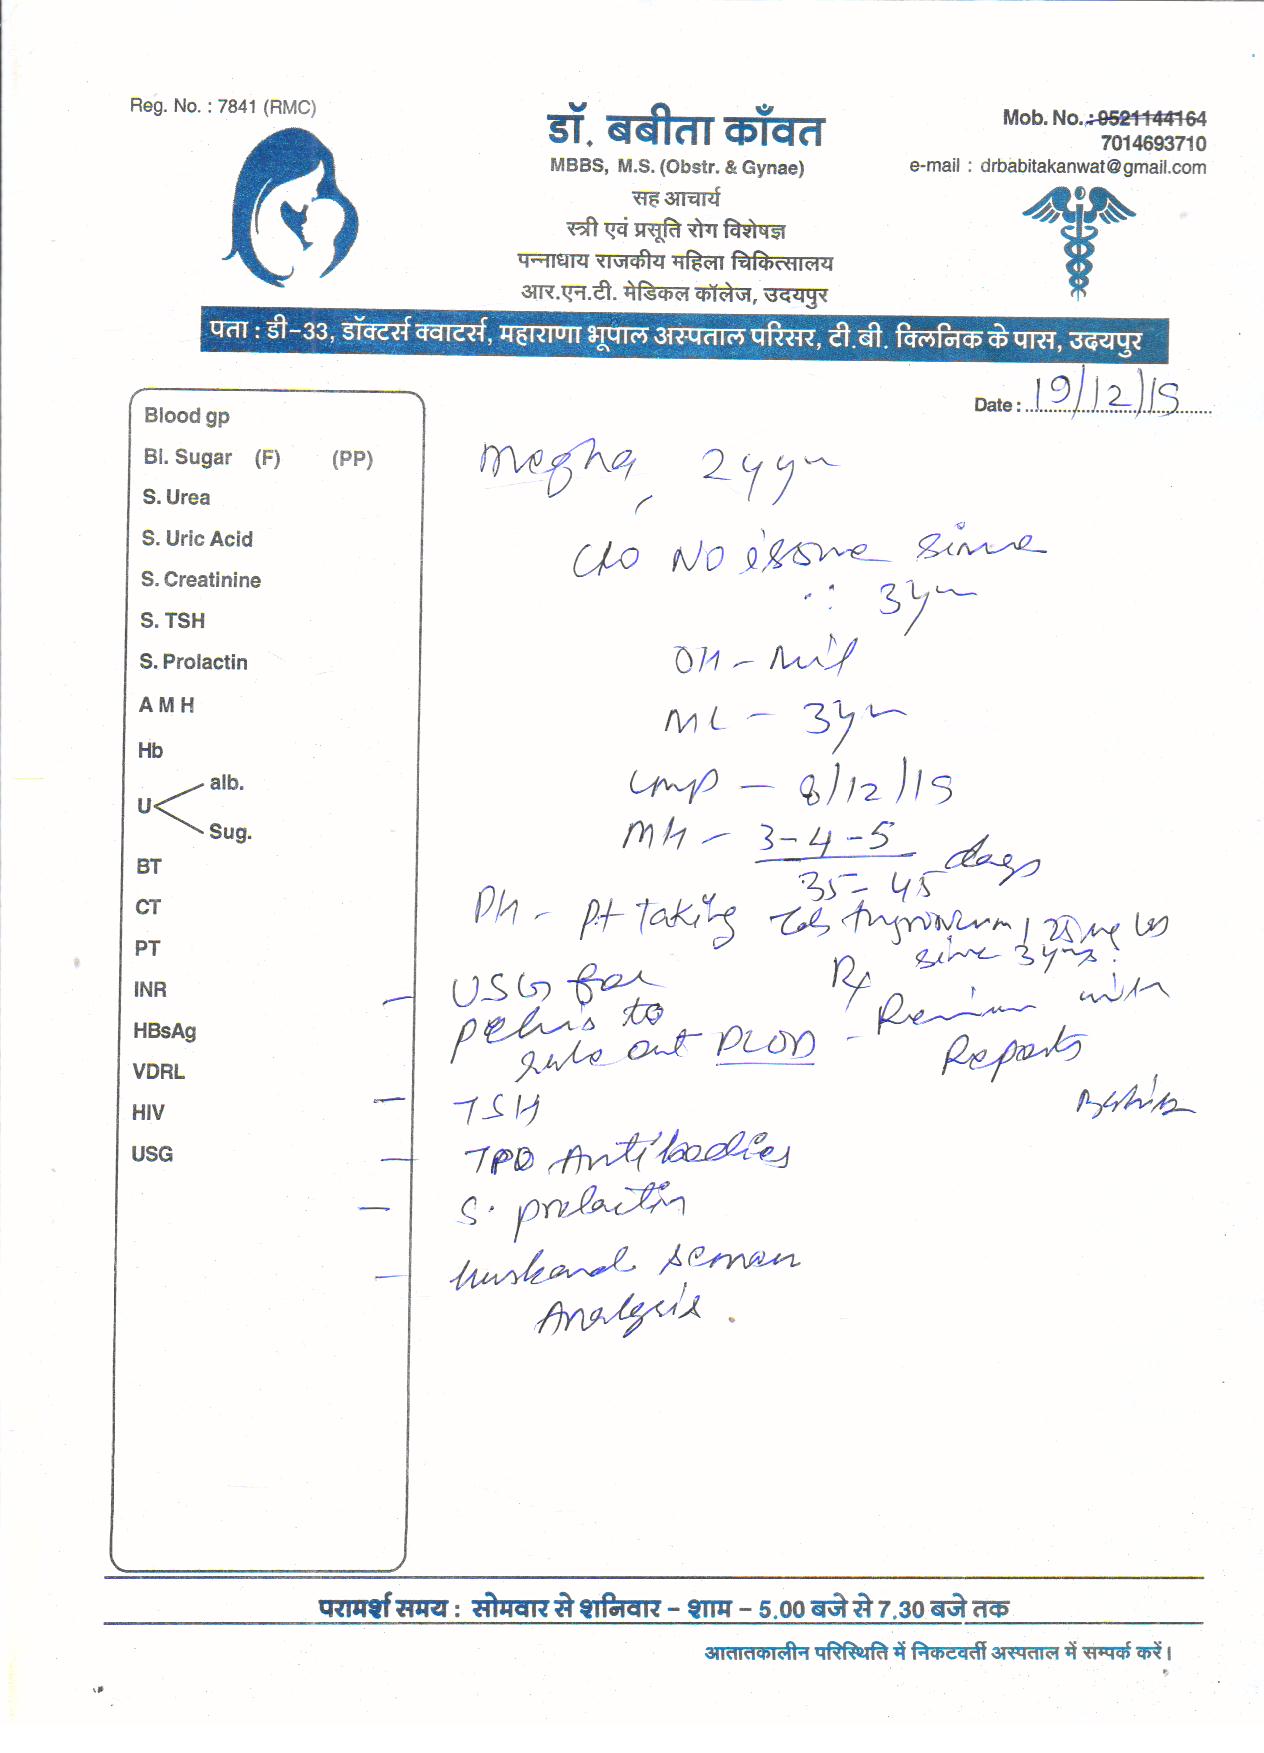 Reg. No. : 7841 (RMC)
डॉ. बबीता काँवत
MBBS, M.S. (Obstr. & Gynae)
सह आचार्य
स्त्री एवं प्रसूति रोग विशेषज्ञ
पन्नाधाय राजकीय महिला चिकित्सालय
आर.एन.टी. मेडिकल कॉलेज, उदयपुर
Mob. No. : 9521144164
7014693710
e-mail : drbabitakanwat@gmail.com
पता : डी-33, डॉक्टर्स क्वाटर्स, महाराणा भूपाल अस्पताल परिसर, टी.बी. क्लिनिक के पास, उदयपुर
Date : 19/12/19
Blood gp
Bl. Sugar (F) (PP)
S. Urea
S. Uric Acid
S. Creatinine
S. TSH
S. Prolactin
A M H
Hb
U alb.
Sug.
BT
CT
PT
INR
HBsAg
VDRL
HIV
USG
Megha, 24yr
C/o No issue since
3yr
OH - Nil
ML - 3yr
LMP - 8/12/19
MH - 3-4-5 days
35-45
PH - pt taking Tab 25 mg
since 3 yrs.
- USG for
pelvis to
rule out PCOD
Rx
- Review with
Reports
- TSH
- TPO Antibodies
- S. prolactin
- Husband seman
Analysis.
परामर्श समय : सोमवार से शनिवार - शाम - 5.00 बजे से 7.30 बजे तक
आतातकालीन परिस्थिति में निकटवर्ती अस्पताल में सम्पर्क करें।